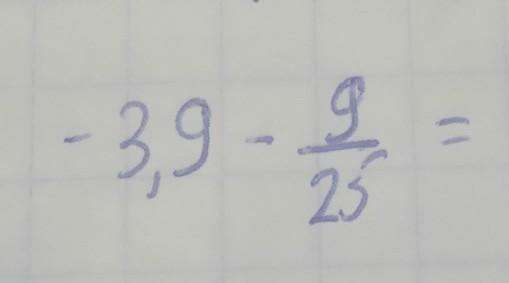 -3,9 - 9/25 =